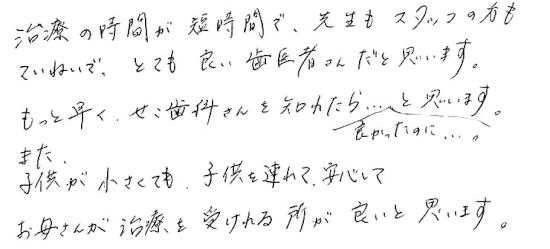 治療の時間が短時間で、先生もスタッフの方も
ていねいで、とても良い歯医者さんだと思います。
もっと早く、せこ歯科さんを知れたら….と思います。
良かったのに…。
また、
子供が小さくても、子供を連れて、安心して
お母さんが治療を受けれる所が良いと思います。